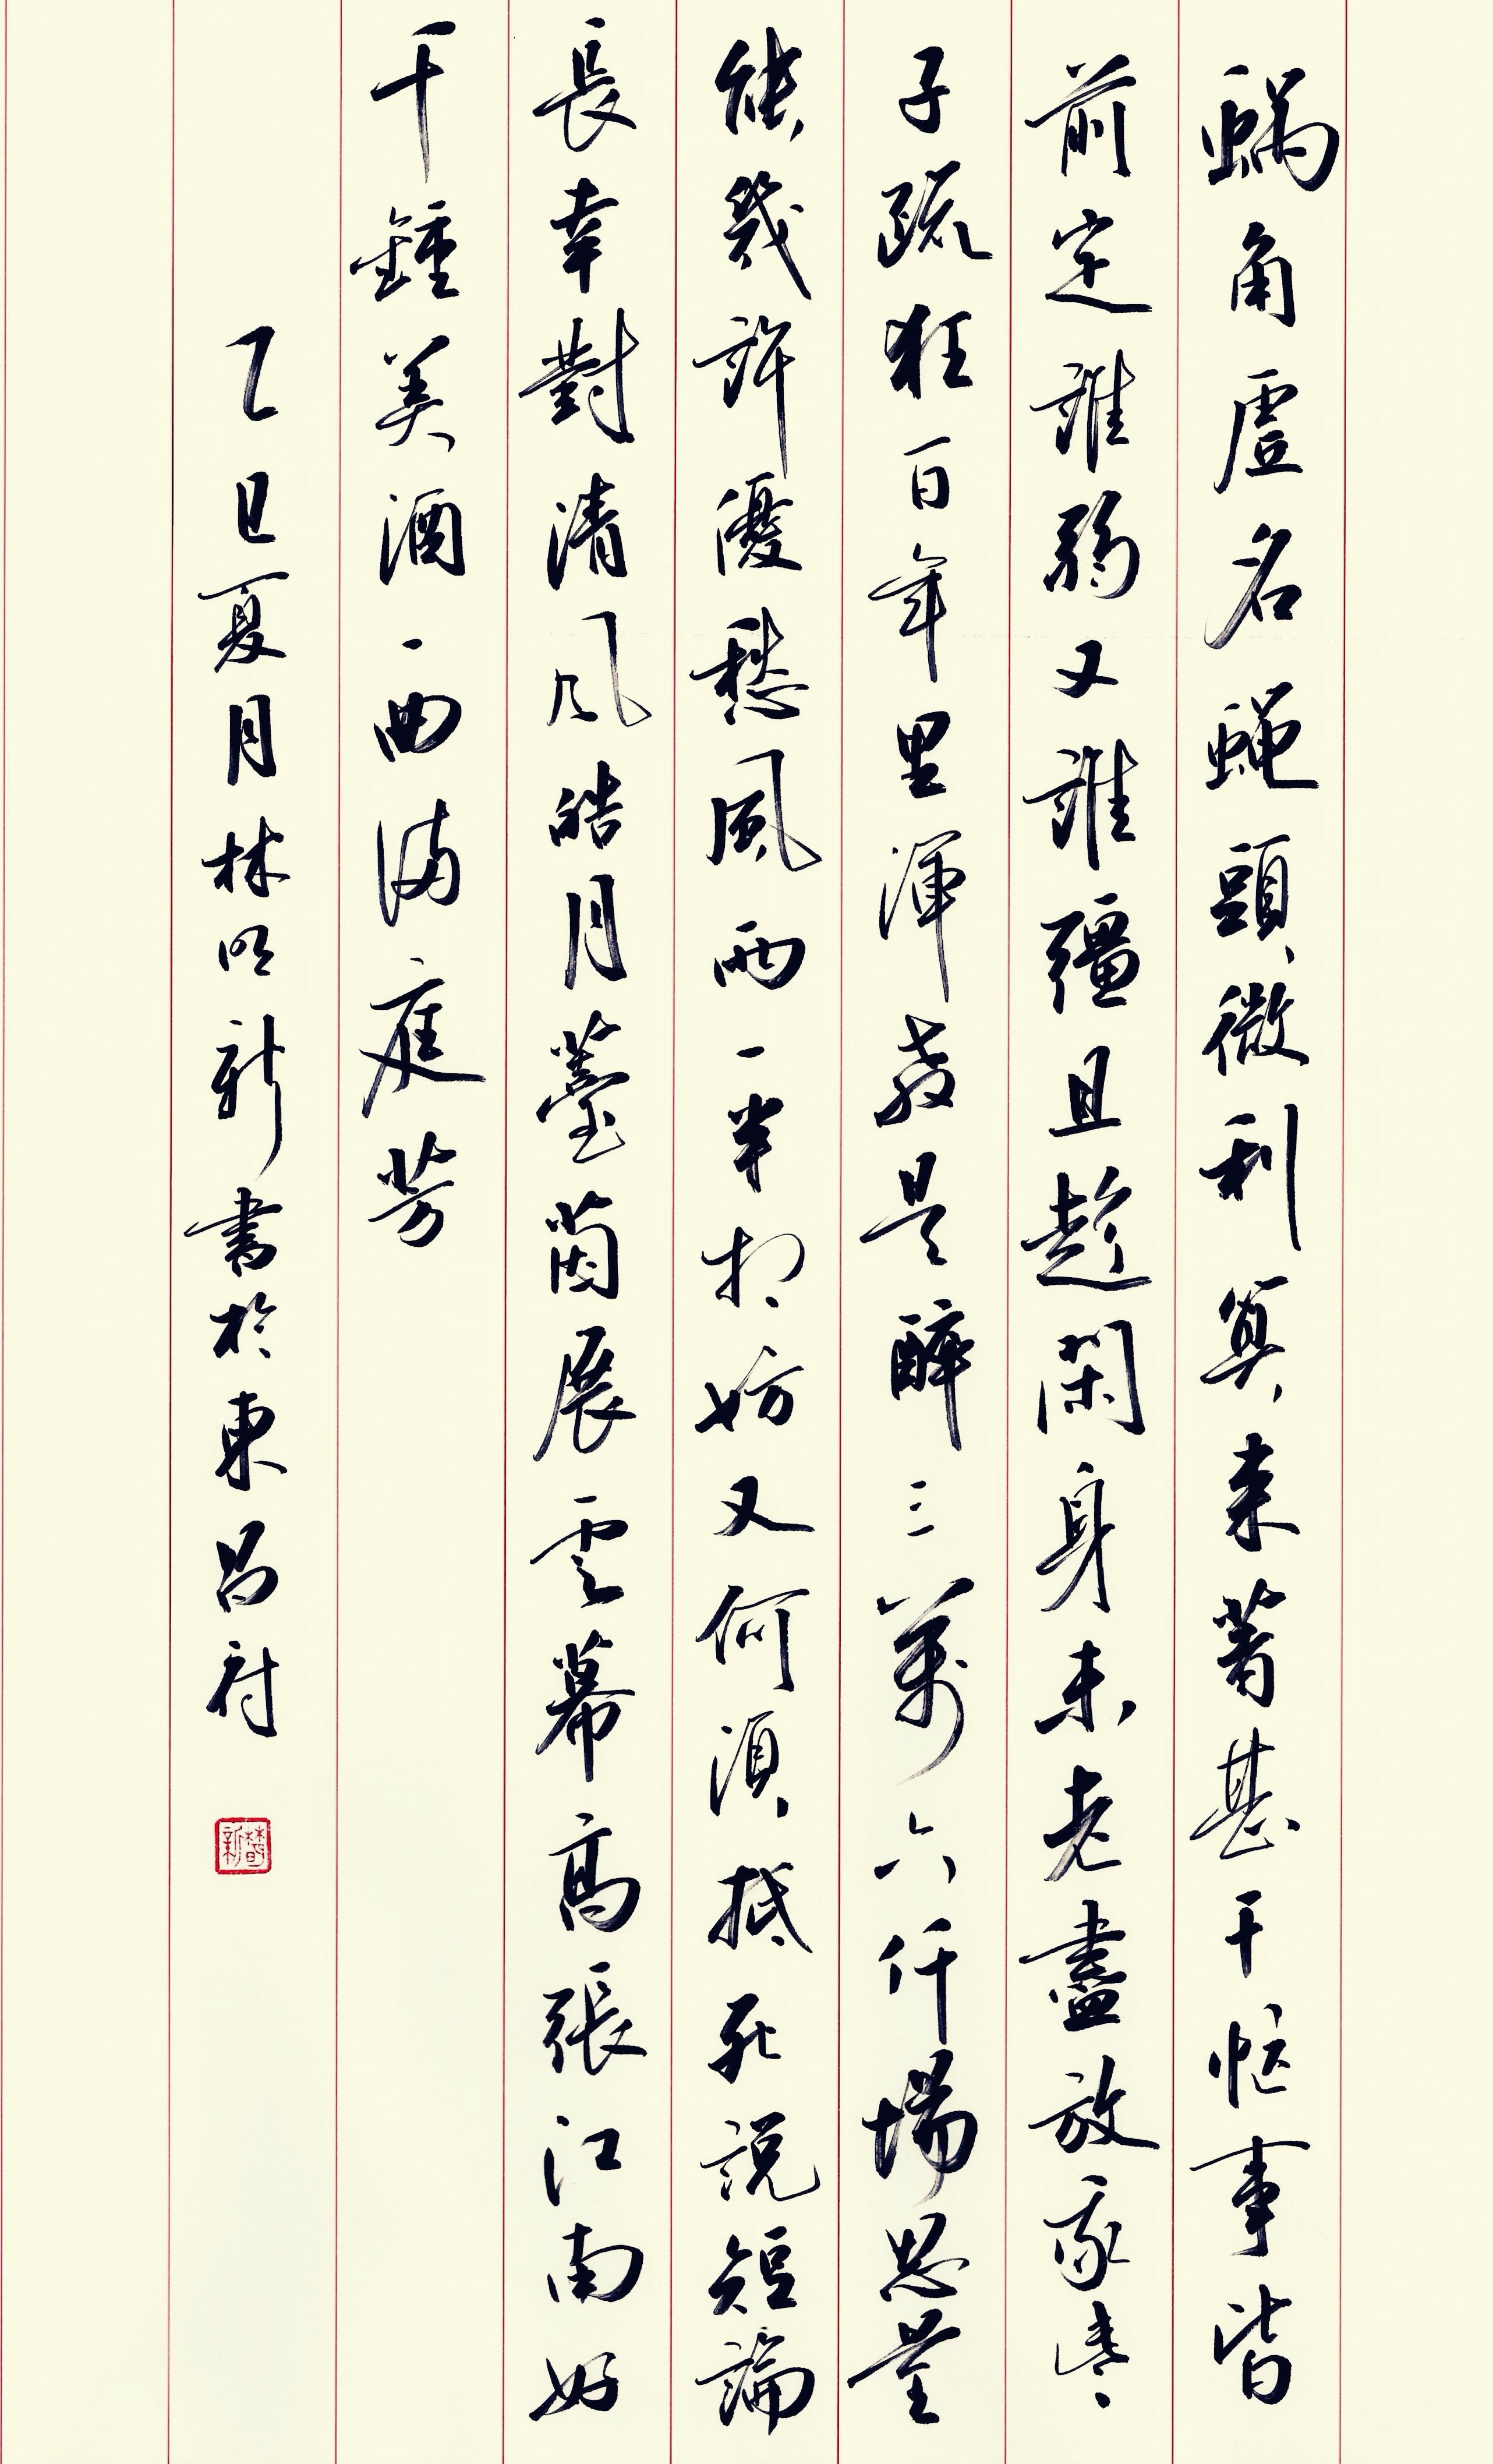 蝸角虛名蝇頭微利算来著甚干忙事皆
前定誰弱又誰彊且趁閑身未老盡放我些
子疏狂百年里渾教是醉三萬六仟場思量
能幾許優愁風雨一半相妨又何須抵死說短論
長幸對清風皓月薹茵展雲幕高張江南好
千鍾美酒一曲滿庭芳
乙巳夏月林明新書於東昌府